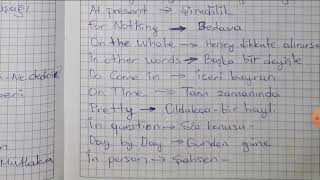 At present → Şimdilik
For Nothing → Bedava
On the whole → Herşey dikkate alınırsa
In other words → Başka bir deyişle
Do Come in → İçeri buyrun
On Time → Tam zamanında
Pretty → Oldukça - bir hayli
İn question → Söz konusu
Day by Day → Günden güne
İn person → Şahsen